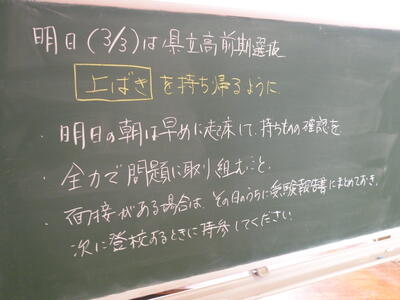 明日(3/3)は県立高前期選抜
上ばきを持ち帰るように
・明日の朝は早めに起床して、持ちもの確認を
・全力で問題に取り組むこと。
・面接がある場合は、その日のうちに受験報告書にまとめておき、
次に登校するときに持参してください